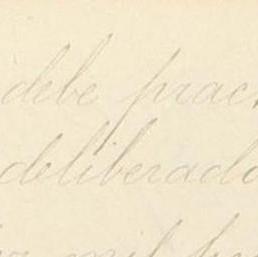 debe prac
deliberado
mil